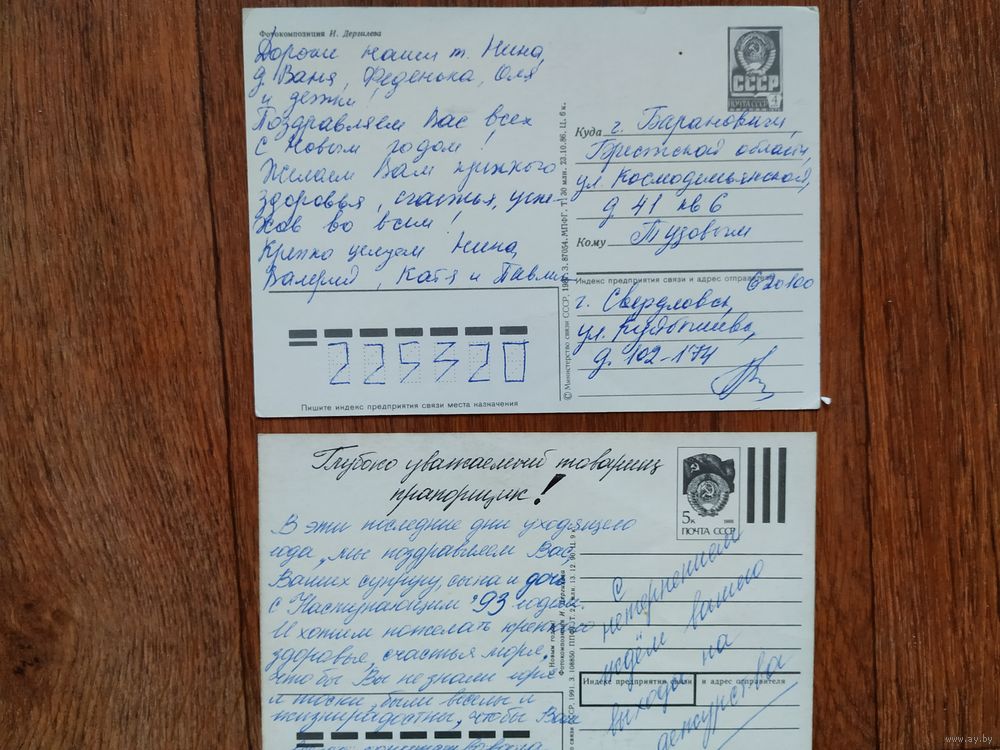 Фотокомпозиция И. Дергилева
Дорогие наши т. Нина,
д. Ваня, Феденька, Оля
и детки!
Поздравляем Вас всех
с Новым годом!
Желаем Вам крепкого
здоровья, счастья, успе-
хов во всём!
Крепко целуем Нина,
Валерий, Катя и Павлик
225320
Пишите индекс предприятия связи места назначения
© Министерство связи СССР, 198 З. 87054. МПФГ. Т. 30 млн. 23.10.86. Ц. 6 к.
СССР
4
ПОЧТА СССР
Куда г. Барановичи,
Брестской области,
ул. Космодемьянской,
д 41 кв 6
Кому Тузовым
Индекс предприятия связи и адрес отправителя
620100
г. Свердловск,
ул. Куйбышева,
д. 102-174
Глубоко уважаемый товарищ
прапорщик!
В эти последние дни уходящего
года, мы поздравляем Вас,
Ваших супругу сына и дочь
с Наступающим '93 годом.
И хотим пожелать крепкого
здоровья, счастья море,
чтобы Вы не знали
и тоски, были веселы и
жизнерадостны, чтобы Ваш
С Новым годом!
Фотокомпозиция И. Дергилева
СССР, 1991. З. 108850. ППФ 13.12.90. Ц. 9
5к
1988
ПОЧТА СССР
С
нетерпением
ждём вашего
выхода на
дежурства
Индекс предприятия связи и адрес отправителя
www.ay.by